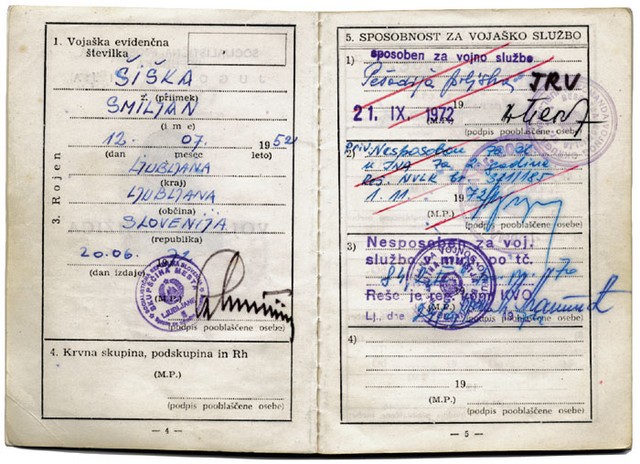 1. Vojaška evidenčna
številka
ŠIŠKA
2. (priimek)
SMILJAN
(ime)
12. 07. 1952
(dan mesec leto)
LJUBLJANA
(kraj)
LJUBLJANA
(občina)
SLOVENIJA
(republika)
3. Rojen
20.06. 71
(dan izdaje)
(M.P.)
SKUPŠČINA MESTA
LJUBLJANE
(podpis pooblaščene osebe)
4. Krvna skupina, podskupina in Rh
(M.P.)
(podpis pooblaščene osebe)
— 4 —
5. SPOSOBNOST ZA VOJAŠKO SLUŽBO
1) sposoben za vojno službo
Pešadija JRV
21. IX. 1972 19
(M.P.)
(podpis pooblaščene osebe)
2) priv. Nesposoban za sl.
u JNA za 2 godine
(M.P.)
(podpis pooblaščene osebe)
3) Nesposoben za voj.
službo v miru po tč.
Reše je
Lj., dne
(M.P.)
(podpis pooblaščene osebe)
4)
19
(M.P.)
(podpis pooblaščene osebe)
— 5 —